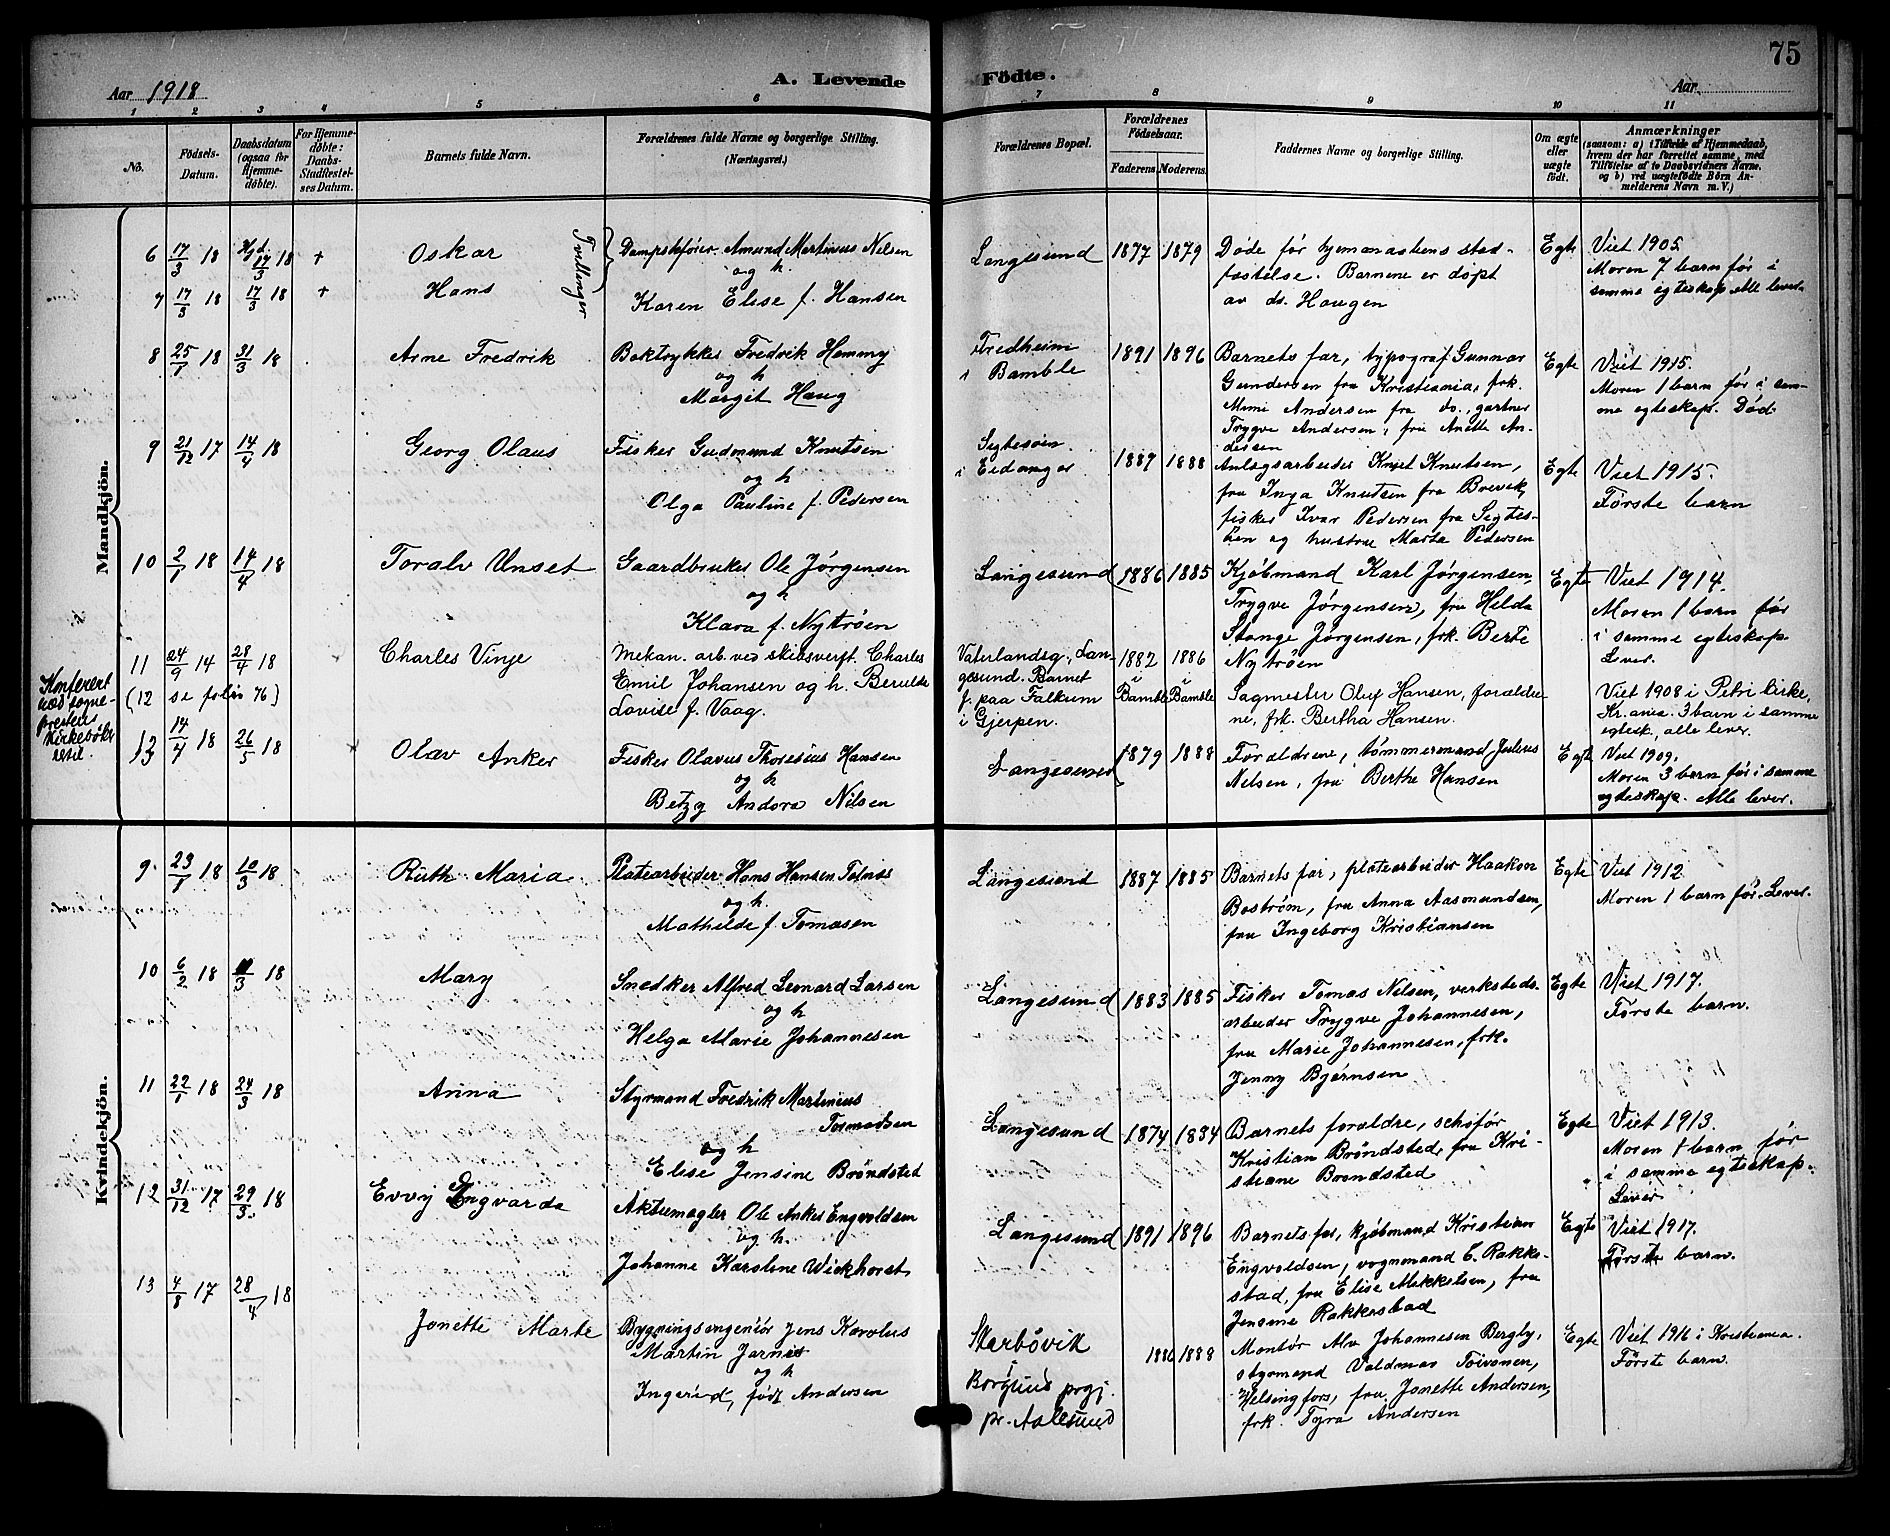 75
Aar 1918
A. Levende Födte.
Aar
1 2 3 4 5 6 7 8 9 10 11
No.
Födsels-Datum.
Daabsdatum (ogsaa for Hjemme-døbte).
For Hjemme-døbte: Daabs-Stadfæstel-ses Datum.
Barnets fulde Navn.
Forældrenes fulde Navne og borgerlige Stilling. (Næringsvei.)
Forældrenes Bopæl.
Forældrenes Fødselsaar.
Faderens Moderens
Faddernes Navne og borgerlige Stilling.
Om ægte eller uægte født.
Anmærkninger
(saasom: a) i Tilfælde af Hjemmedaab, hvem der har forrettet samme, med Tilføielse af to Daabsvidners Navne. og b) ved uægtefødte Børn An-melderens Navn m. V.)
Mandkjön.
6 17/3 18 Hjd. 17/3 18 +
Oskar
Tvillinger
Dampskfører Amund Martinius Nilsen
og h.
Langesund 1877 1879
Døde før hjemmedaabens stad-
fæstelse. Barnene er døpt
av dr. Haugen
Egte
Viet 1905.
Moren 7 barn før i
samme egteskap alle lever.
7 17/3 18 17/3 18 +
Hans
Karen Elise f. Hansen
8 25/1 18 31/3 18
Arne Fredrik
Boktrykker Fredrik Hemmy
og h
Margit Haug
Fredheim
i Bamble
1891 1896
Barnets far, typograf Gunnar
Gundersen fra Kristiania, frk.
Mimi Andersen fra do., gartner
Trygve Andersen, fru Anette An-
dersen
Egte
Viet 1915.
Moren 1 barn før i sam-
me egteskap. Død.
9 21/12 17 14/4 18
Georg Olaus
Fisker Gudmund Knutsen
og h
Olga Pauline f. Pedersen
i Eidanger
1889 1888
Anlægsarbeider Knut Knutsen,
fru Inga Knutsen fra Brevik,
fisker Ivar Pedersen fra Sigtes-
øen og hustru Marta Pedersen
Egte
Viet 1915.
Første barn
10 2/1 18 14/4 18
Toralv Unset
Gaardbruker Ole Jørgensen
og h
Klara f. Nytrøen
Langesund 1886 1885
Kjøbmand Karl Jørgensen,
Trygve Jørgensen, fru Hilda
Stange Jørgensen, frk. Berte
Nytrøen
Egte
Viet 1914.
Moren 1 barn før
i samme egteskap.
Lever.
11 24/9 14 28/4 18
Charles Vinje
Mekan. arb. ved skibsverft. Charles
Emil Johansen og h. Berulde
Lovise f. Vaag.
Vaterlandsg., Lan-
gesund. Barnet
f. paa Falkum
i Gjerpen.
1882 i Bamble 1886 i Bamble
Sagmester Oluf Hansen, forældre-
ne, frk. Bertha Hansen.
Viet 1908 i Petri kirke,
Kr.ania. 3 barn i samme
egtesk., alle lever.
Konferert
med sogne-
prestens
kirkebok
(12 se folio 76)
13 14/4 18 26/5 18
Olav Anker
Fisker Olavus Thoresius Hansen
og h
Betzy Andora Nilsen
Langesund 1879 1888
Forældrene, tømmermand Julius
Nelsen, fru Berthe Hansen
Egte
Viet 1909.
Moren 3 barn før i samme
egteskap. Alle lever.
Kvindekjön.
9 23/1 18 10/3 18
Ruth Maria
Platearbeider Hans Hansen Tolnæs
og h.
Mathilde f. Tomasen
Langesund 1887 1885
Barnets far, platearbeider Haakon
Bostrøm, fru Anna Aasmundsen,
fru Ingeborg Kristiansen
Egte
Viet 1912.
Moren 1 barn før. Lever.
10 6/2 18 /3 18
Mary
Snedker Alfred Leonard Larsen
og h
Helga Marie Johannesen
Langesund 1883 1885
Fisker Tomas Nilsen, verksteds-
arbeider Trygve Johannesen,
fru Marie Johannesen, frk.
Jenny Bjørnsen
Egte
Viet 1917.
Første barn.
11 22/1 18 24/3 18
Anna
Styrmand Fredrik Martinius
Tormodsen
og h
Elise Jensine Brøndsted
Langesund 1874 1884
Barnets forældre, schofør
Kristian Brøndsted, fru Kri-
stiane Brøndsted
Egte
Viet 1913.
Moren 1 barn før
i samme egteskap.
Lever
12 31/12 17 29/3 18
Evvy Engvarda
Aktiemægler Ole Anker Engvoldsen
og h.
Johanne Karoline Wickhorst
Langesund 1891 1896
Barnets far, kjøbmand Kristian
Engvoldsen, vognmand C. Rakke-
stad, fru Elise Mikkelsen, fru
Jensine Rakkestad
Egte
Viet 1917.
Første barn.
13 4/8 17 28/4 18
Jonette Marte
Bygningsingeniør Jens Karolus
Martin Jarnis
og h
Ingerid, født Andersen
Skarbøvik
Borgund prgj.
pr. Aalesund
1886 1888
Montør Alv Johannesen Bergby,
styrmand Valdmar Toivonen,
Helsingfors, fru Jonette Andersen,
frk. Tyra Andersen
Egte
Viet 1916 i Kristiania.
Første barn.